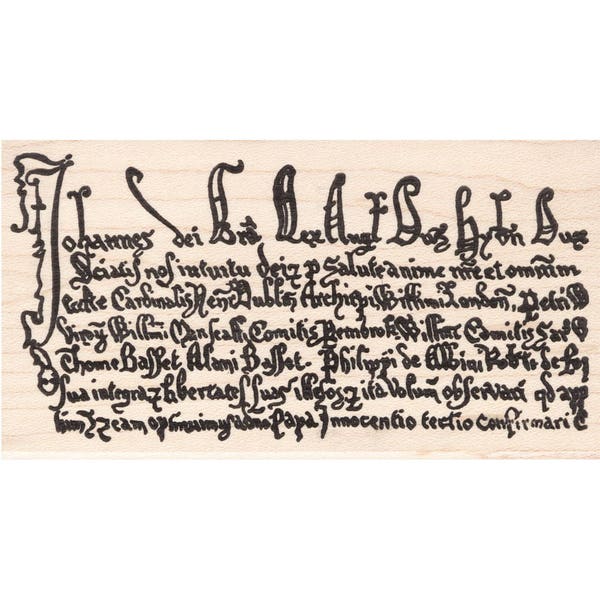 Johannes dei Gra Rex Angl Dns Hybn Dux
Sciatis nos intuitu dei z p salute anime nre et omnim
ecclie Cardinalis Henr Dublin Archiepi Willmi London, Petri W
Willmi Marescall Comitis Penbrok Willmi Comitis Sar
Thome Basset, Alani Basset, Philippi de Albini Robti de
sua integra z libertates suas illesas z ita volum observari qd app
eam optinuimus a dno Papa Innocentio tertio Confirmari